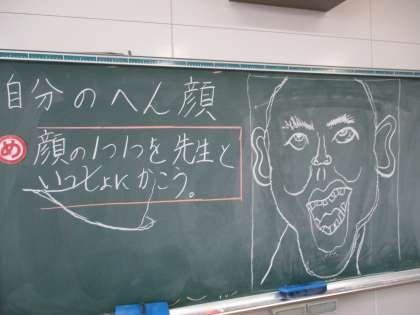 自分のへん顔
め
顔の1つ1つを先生と
いっしょにかこう。